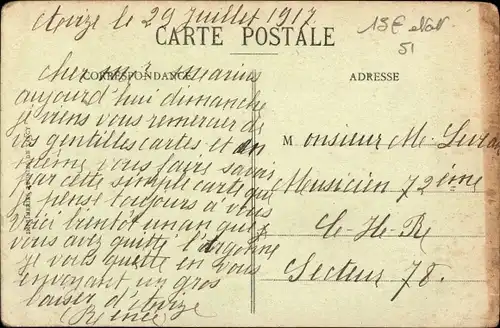 le 29 Juillet 1917
CARTE POSTALE
CORRESPONDANCE
ADRESSE
Cher Marius
aujourd'hui dimanche
je viens vous remercier de
vos gentilles cartes et en
même vous faire savoir
par cette simple carte que
je pense toujours à vous
voici bientôt un an que
vous avez quitté l'Argonne
je vous quitte en vous
envoyant un gros
baiser
Monsieur M.
Musicien 72ème
Secteur 78.
51